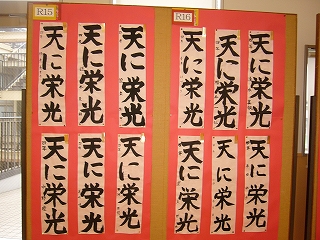 R15
R16
天に栄光
天に栄光
天に栄光
天に栄光
天に栄光
天に栄光
天に栄光
天に栄光
天に栄光
天に栄光
天に栄光
天に栄光